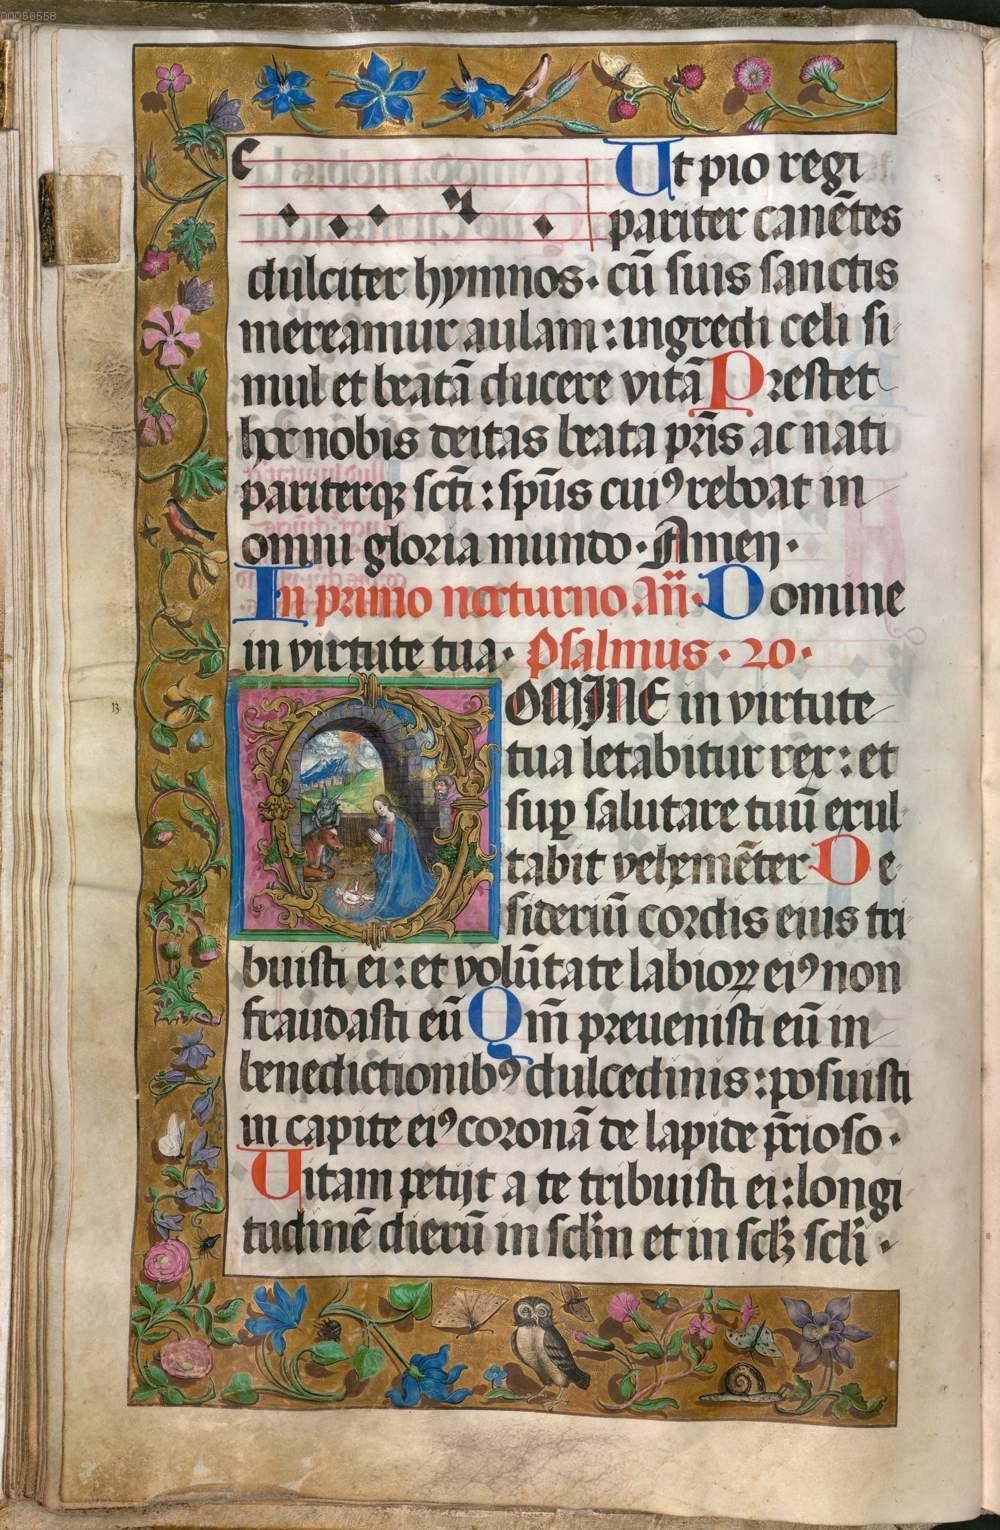 00056558
Ut pio regi
pariter canētes
dulciter hymnos· cū suis sanctis
mereamur aulam: ingredi celi si
mul et beatā ducere vitā Prestet
hoc nobis deitas beata pr̄is ac nati
pariterqꝫ sct̄i: sp̄us cuiꝰ reboat in
omni gloria mundo· Amen·
In primo nocturno an̄· Domine
in virtute tua· Psalmus· 20·
OMINE in virtute
tua letabitur rex: et
suꝑ salutare tuū exul
tabit vehemēter De
sideriū cordis eius tri
buisti ei: et volūtate labioꝝ eiꝰ non
fraudasti eū Qm̄ preuenisti eū in
benedictionibꝰ dulcedinis: posuisti
in capite eiꝰ coronā de lapide p̄cioso·
Uitam petijt a te tribuisti ei: longi
tudinē dierū in scl̄m et in scl̄ꝫ scl̄i·
13